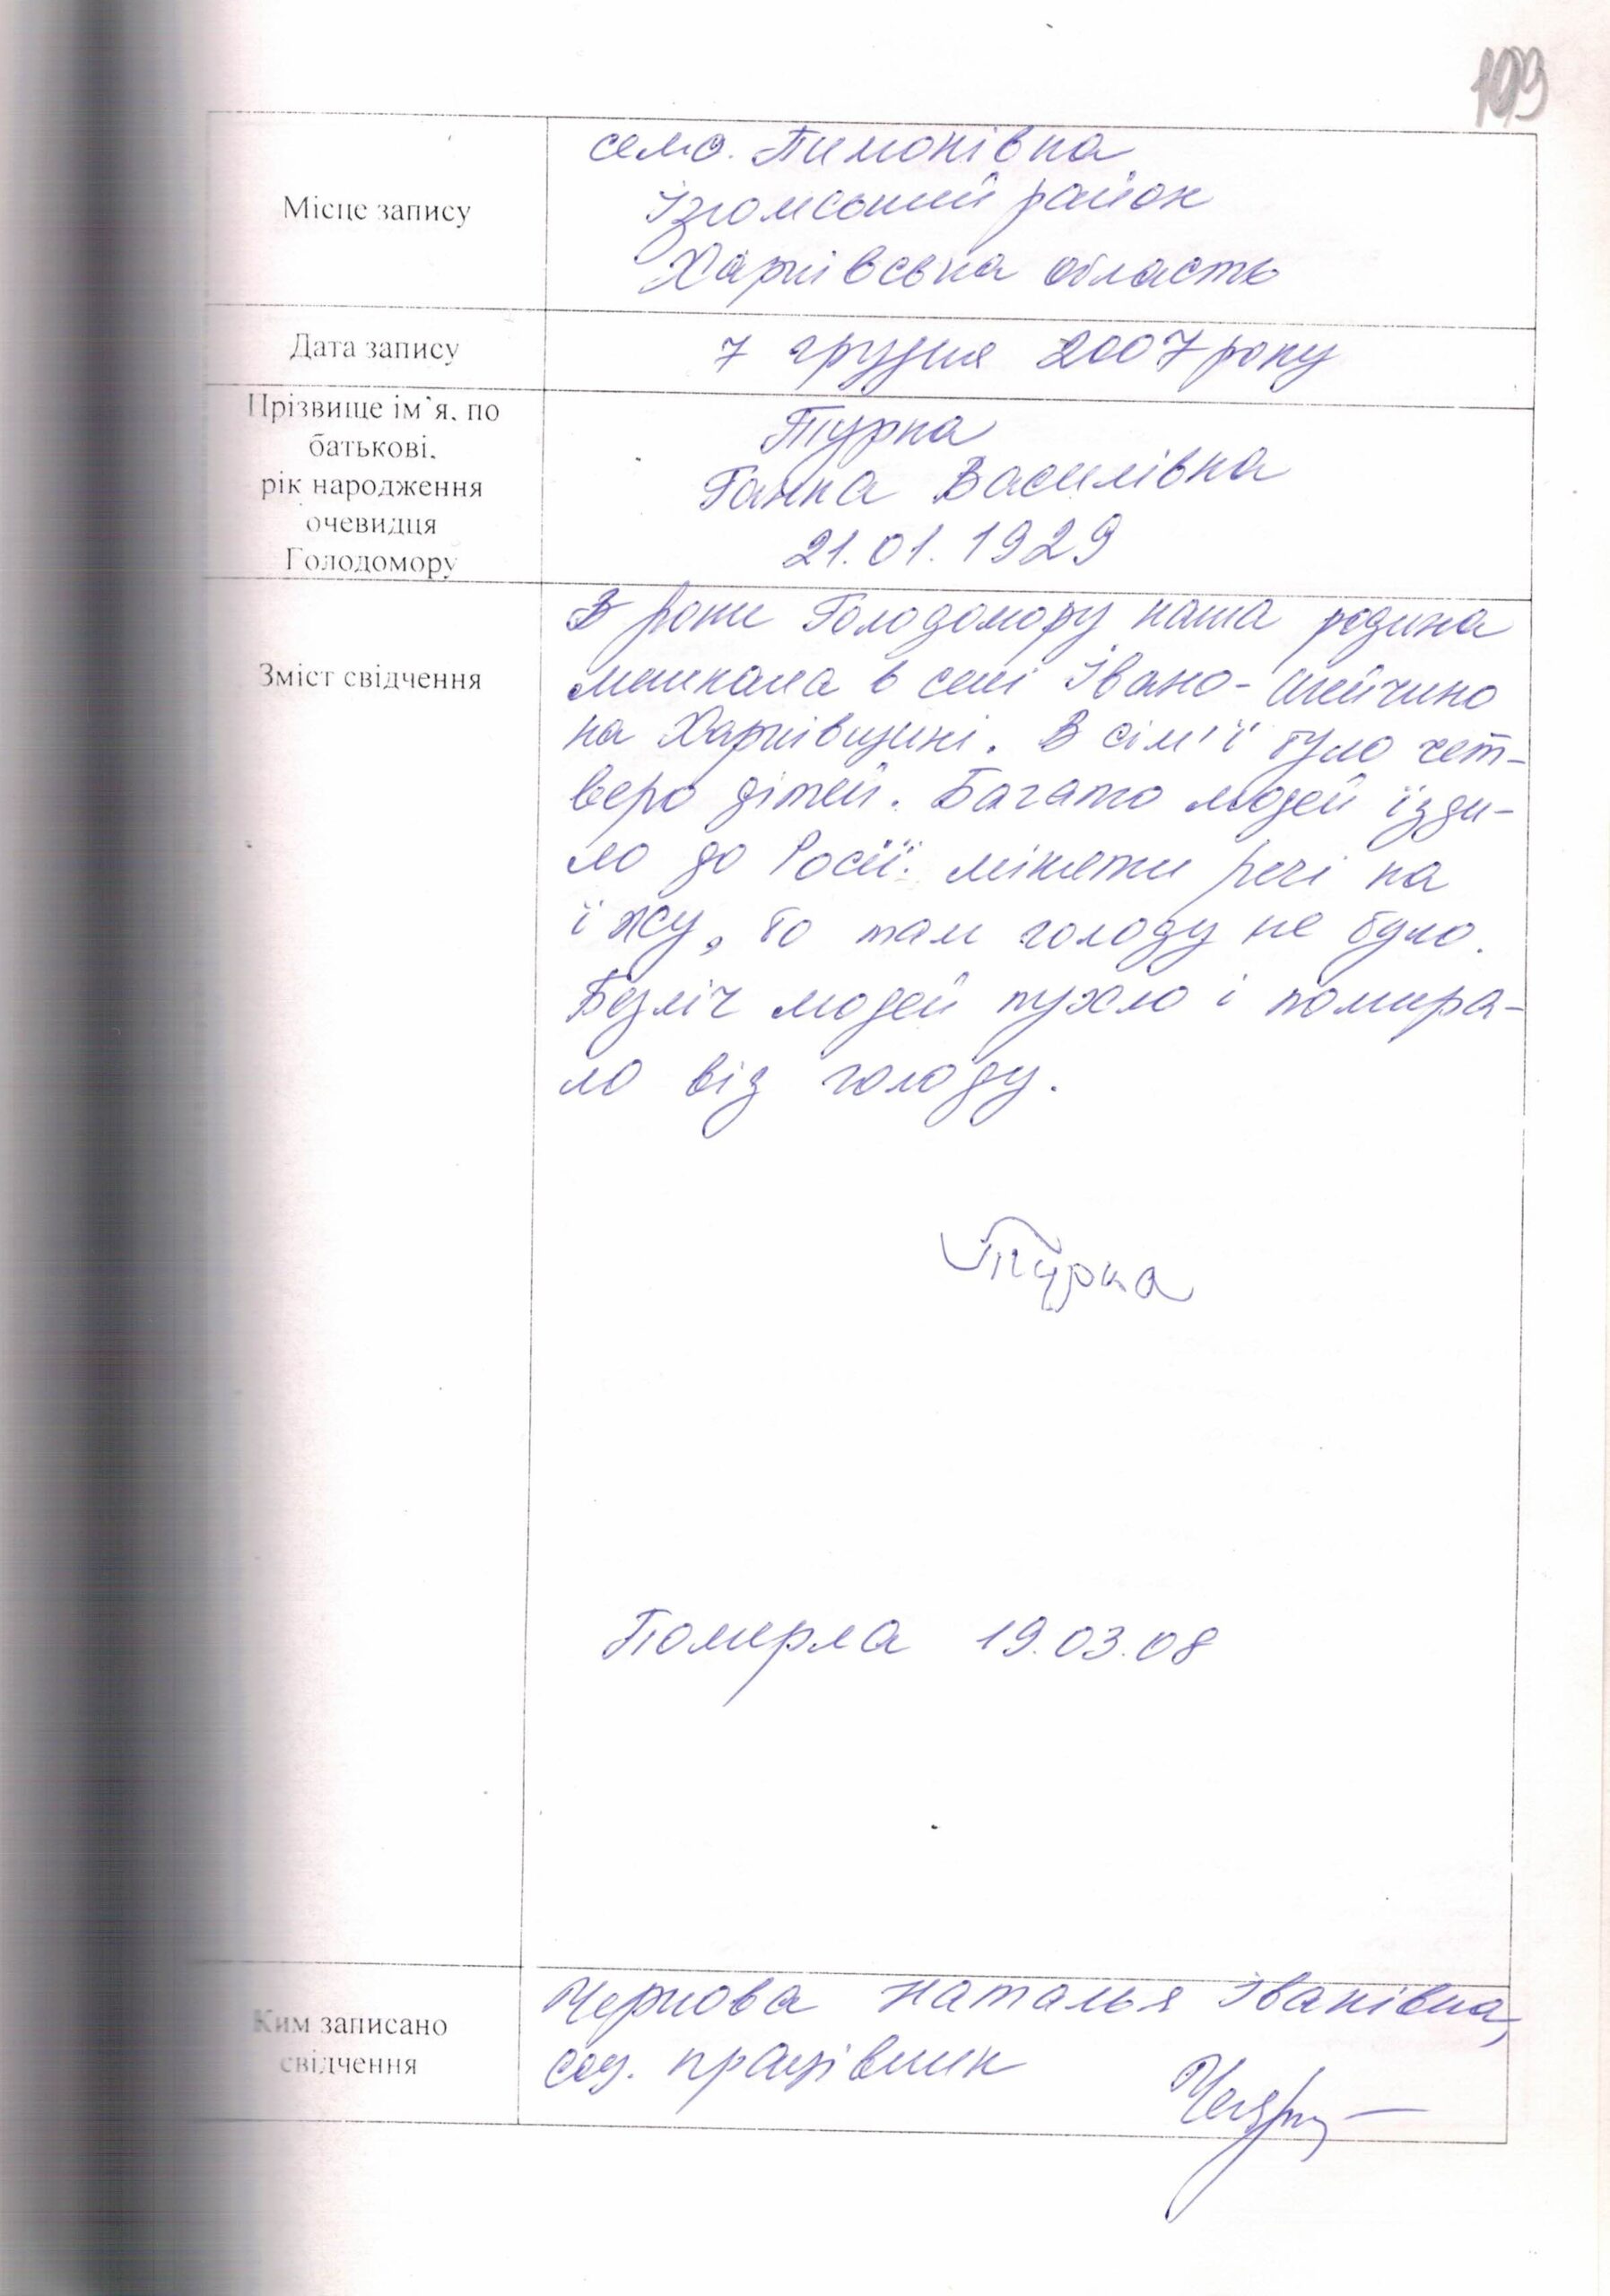 109
Місце запису
село. Тимонівка
Ізюмський район
Харківська область
Дата запису
7 грудня 2007 року
Прізвище ім`я, по
батькові,
рік народження
очевидця
Голодомору
Турка
Ганна Василівна
21.01.1929
Зміст свідчення
В роки Голодомору наша родина
мешкала в селі Івано-Шийчино
на Харківщині. В сім'ї було чет-
веро дітей. Багато людей їзди-
ло до Росії міняти речі на
їжу, бо там голоду не було.
Безліч людей пухло і помира-
ло від голоду.
Турка
Померла 19.03.08
Ким записано
свідчення
Чернова Наталья Іванівна,
соц. працівник